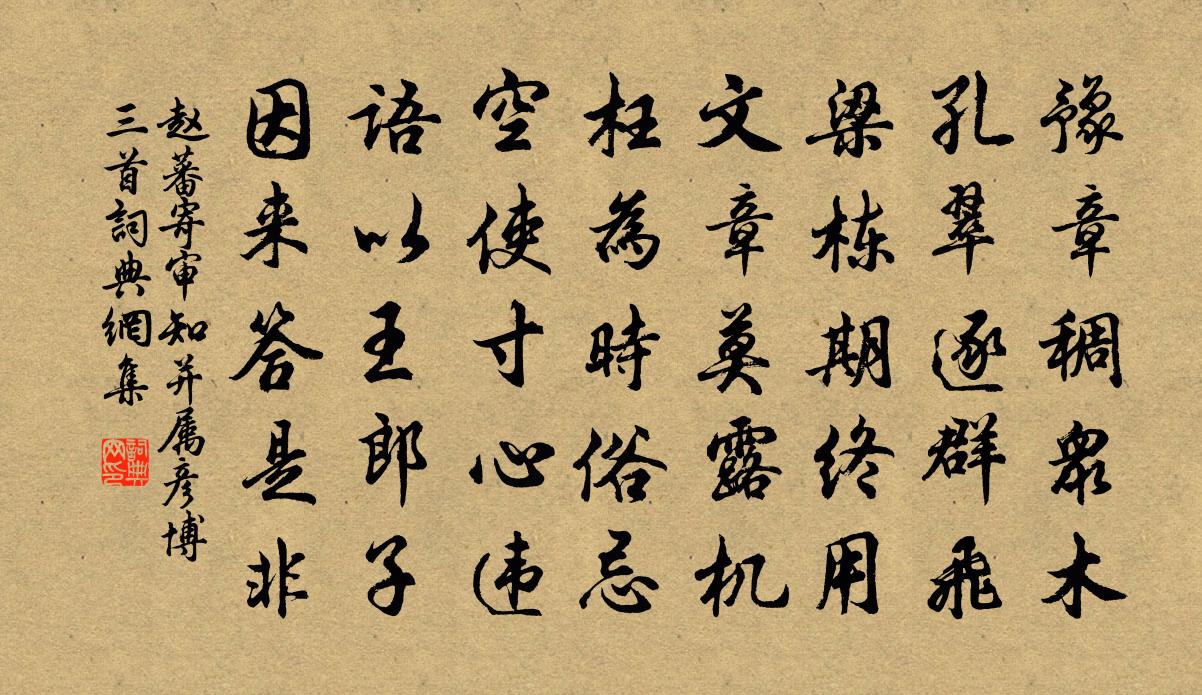 豫章稠眾木
孔翠逐群飛
梁栋期终用
文章莫露机
枉為時俗忌
空使寸心违
語以王郎子
因来答是非
赵蕃寄审知并属彦博
三首詞典網集
詞典网印